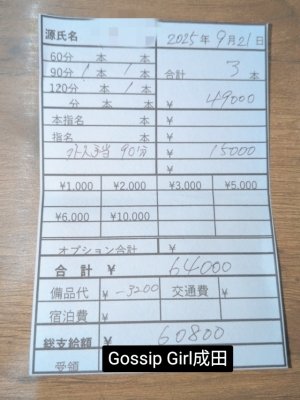 源氏名 2025年9月21日
60分 本 本
90分 1本 1本 合計 3本
120分 1本 本
分 本 本 ¥49000
本指名 本 ¥
指名 本
90分 ¥15000
¥1,000 ¥2,000 ¥3,000 ¥5,000
¥6,000 ¥10,000
オプション合計 ¥
合計 ¥ 64000
備品代 ¥-3200 交通費 ¥
宿泊費 ¥
総支給額 ¥ 60800
受領
Gossip Girl成田